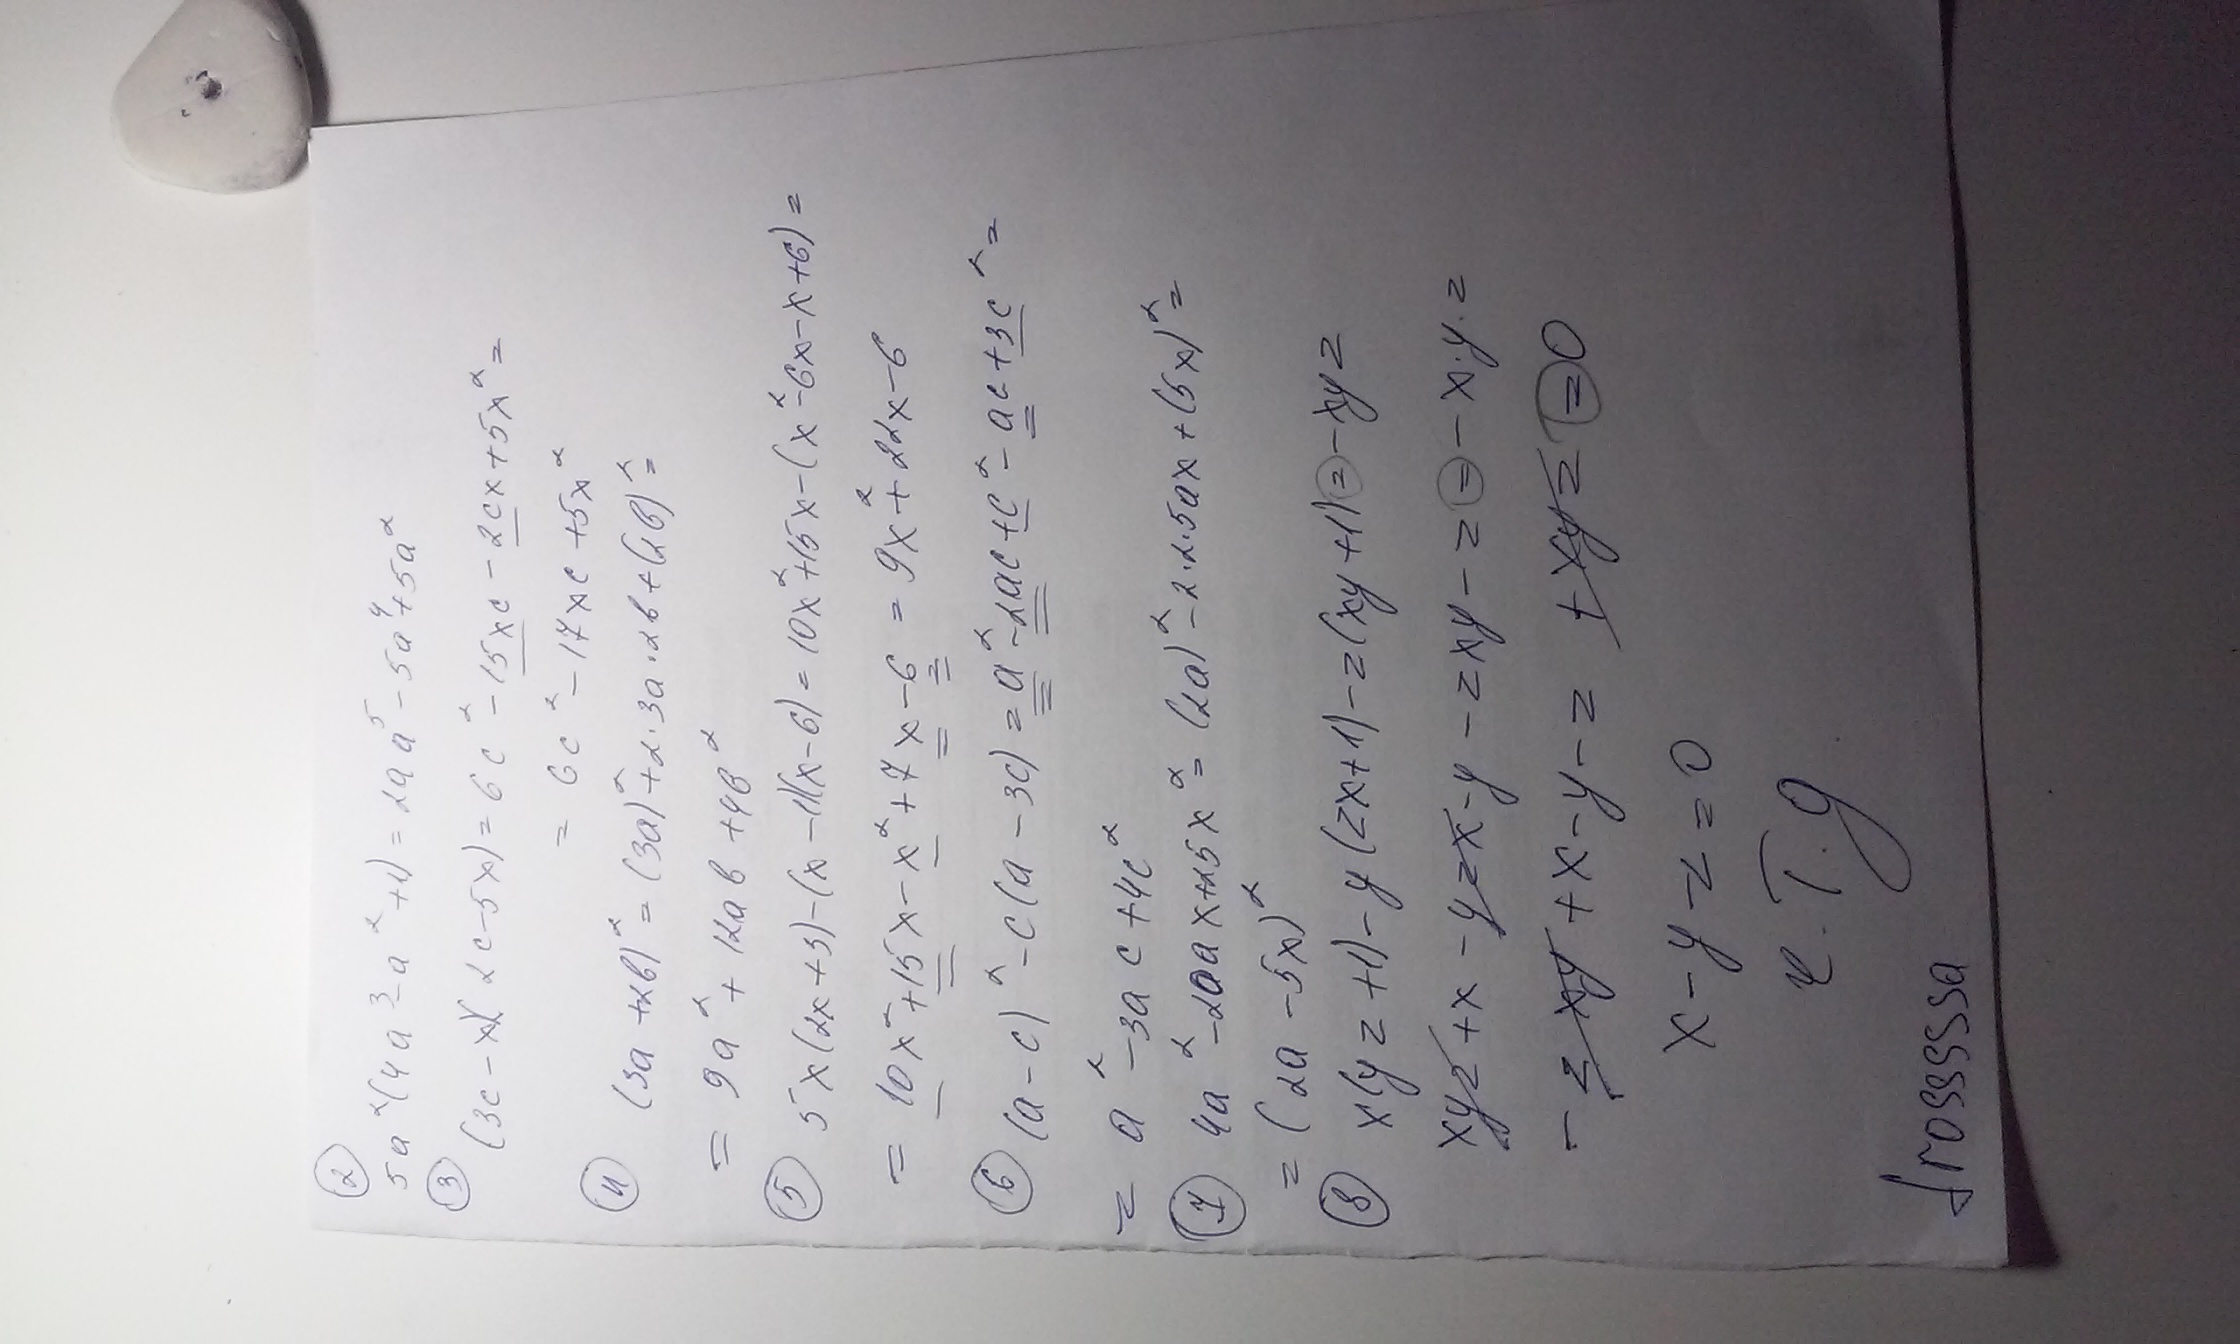 ②
5a²(4a³-a²+1) = 20a⁵-5a⁴+5a²
③ (3c-x)(2c-5x) = 6c²-15xc-2cx+5x²=
= 6c²-17xc+5x²
④ (3a+2b)² = (3a)²+2·3a·2b+(2b)²=
= 9a²+12ab+4b²
⑤ 5x(2x+3)-(x-1)(x-6) = 10x²+15x-(x²-6x-x+6)=
= 10x²+15x-x²+7x-6 = 9x²+22x-6
⑥ (a-c)²-c(a-3c) = a²-2ac+c²-ac+3c²=
= a²-3ac+4c²
⑦ 4a²-20ax+25x² = (2a)²-2·2·5ax+(5x)²=
= (2a-5x)²
⑧ x(yz+1)-y(zx+1)-z(xy+1)=-xyz
xyz+x-yzx-y-zxy-z=-x·y·z
-zxy+x-y-z+xyz=0
x-y-z=0
frossssa